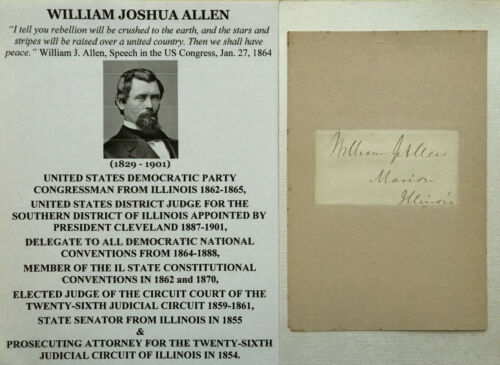 WILLIAM JOSHUA ALLEN
"I tell you rebellion will be crushed to the earth, and the stars and
stripes will be raised over a united country. Then we shall have
peace." William J. Allen, Speech in the US Congress, Jan. 27, 1864
(1829 - 1901)
UNITED STATES DEMOCRATIC PARTY
CONGRESSMAN FROM ILLINOIS 1862-1865,
UNITED STATES DISTRICT JUDGE FOR THE
SOUTHERN DISTRICT OF ILLINOIS APPOINTED BY
PRESIDENT CLEVELAND 1887-1901,
DELEGATE TO ALL DEMOCRATIC NATIONAL
CONVENTIONS FROM 1864-1888,
MEMBER OF THE IL STATE CONSTITUTIONAL
CONVENTIONS IN 1862 and 1870,
ELECTED JUDGE OF THE CIRCUIT COURT OF THE
TWENTY-SIXTH JUDICIAL CIRCUIT 1859-1861,
STATE SENATOR FROM ILLINOIS IN 1855
&
PROSECUTING ATTORNEY FOR THE TWENTY-SIXTH
JUDICIAL CIRCUIT OF ILLINOIS IN 1854.
William J Allen
Marion
Illinois